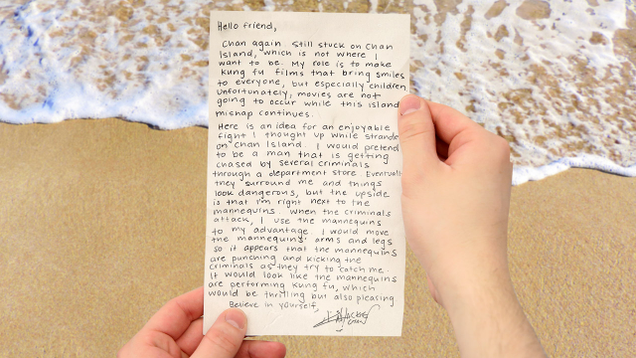 Hello friend,
Chan again. Still stuck on Chan
Island, which is not where I
want to be. My role is to make
kung fu films that bring smiles
to everyone, but especially children.
Unfortunately, movies are not
going to occur while this island
mishap continues.
Here is an idea for an enjoyable
fight I thought up while strande
on Chan Island. I would pretend
to be a man that is getting
chased by several criminals
through a department store. Eventuall
they surround me and things
look dangerous, but the upside
is that I'm right next to the
mannequins. When the criminals
attack, I use the mannequins
to my advantage. I would move
the mannequins' arms and legs
so it appears that the mannequins
are punching and kicking the
criminals as they try to catch me.
It would look like the mannequins
are performing kung fu, which
would be thrilling but also pleasing
Believe in yourself,
Jackie
Chan